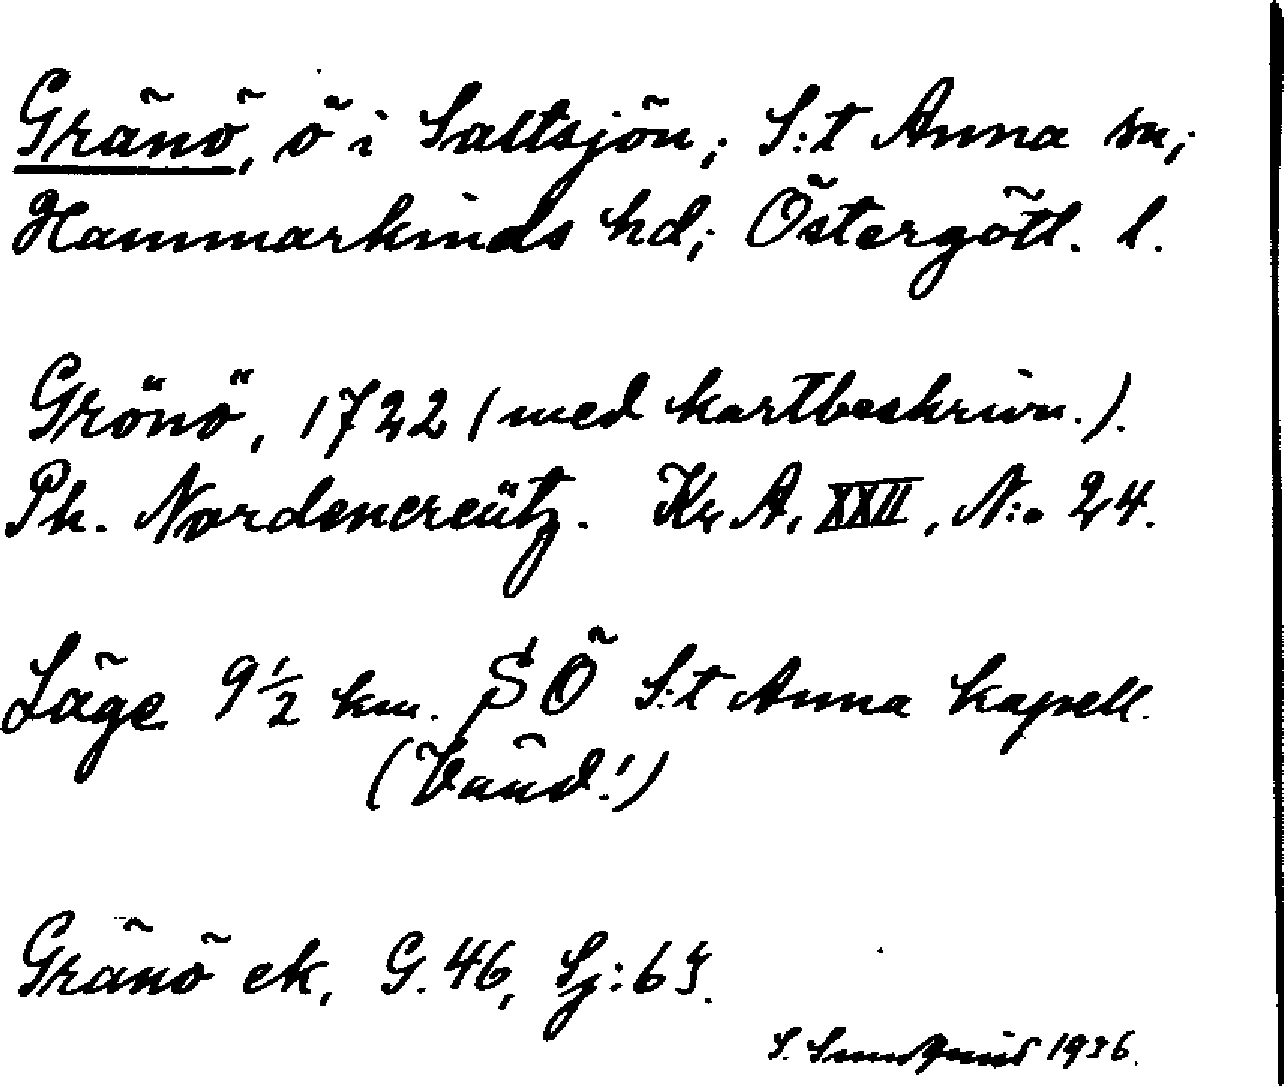 Gränö, ö i Saltsjön; S:t Anna sn;
Hammarkinds hd; Östergötl. l.
Grönö, 1722 (med kartbeskrivn.).
Ph. Nordencreütz. Kr A, XXII, N:o 24.
Läge 9 1/2 km. SÖ S:t Anna kapell.
(Vänd!)
Gränö ek, G. 46, Sj: 65.
S. Sundquist 1936.